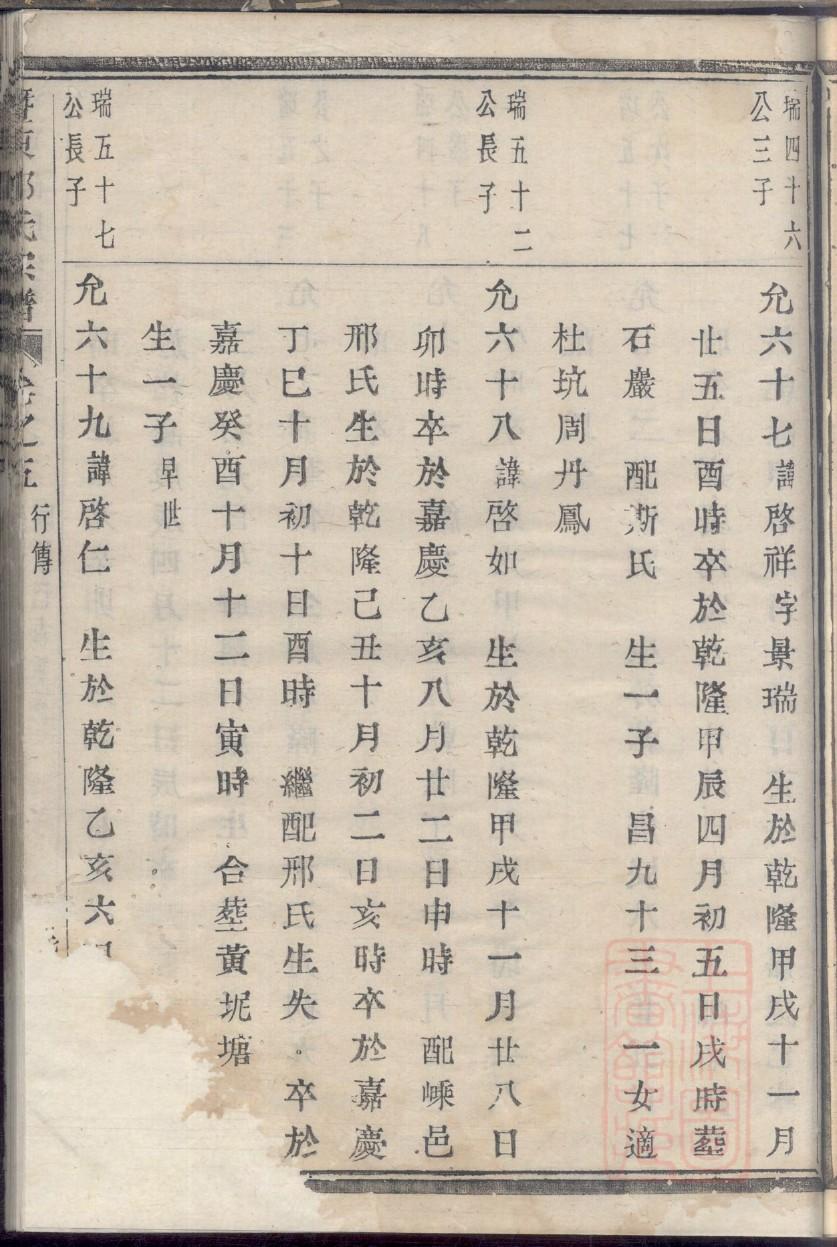 瑞四十六
公三子
允六十七諱啓祥字景瑞　生於乾隆甲戌十一月
廿五日酉時卒於乾隆甲辰四月初五日戌時塟
石巖三　配斯氏　生一子昌九十三　一女適
杜坑周丹鳳
瑞五十二
公長子
允六十八諱啓如　生於乾隆甲戌十一月廿八日
卯時卒於嘉慶乙亥八月廿二日申時　配嵊邑
邢氏生於乾隆己丑十月初二日亥時卒於嘉慶
丁巳十月初十日酉時　繼配邢氏生失　卒於
嘉慶癸酉十月十二日寅時　合塟黃坭塘
生一子早世
瑞五十七
公長子
允六十九諱啓仁　生於乾隆乙亥六
氏宗譜　卷之五　行傳